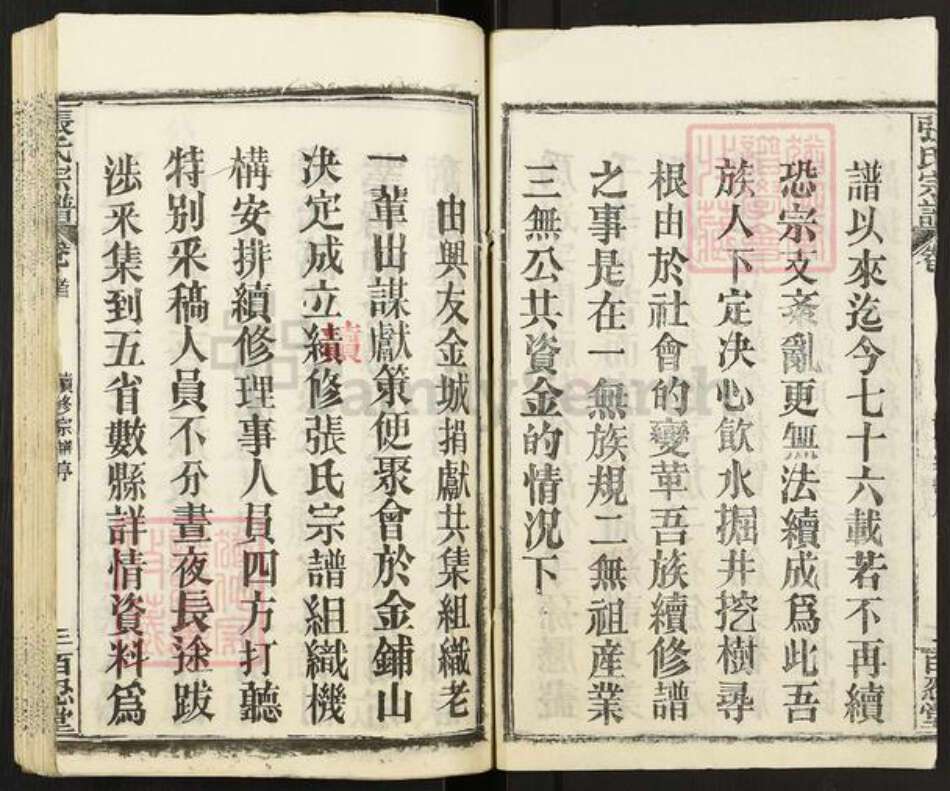 張氏宗譜
百忍堂
譜以來迄今七十六載若不再續
恐宗支紊亂更無法續成爲此吾
族人下定决心飲水掘井挖樹尋
根由於社會的變革吾族續修譜
之事是在一無族規二無祖産業
三無公共資金的情況下
由興友金城捐獻共集組織老
一輩出謀獻策便聚會於金鋪山
决定成立續修張氏宗譜組織機
續
構安排續修理事人員四方打聽
特别采稿人員不分晝夜長途跋
涉采集到五省數縣詳情資料爲
張氏宗譜
續修宗譜序
三百忍堂